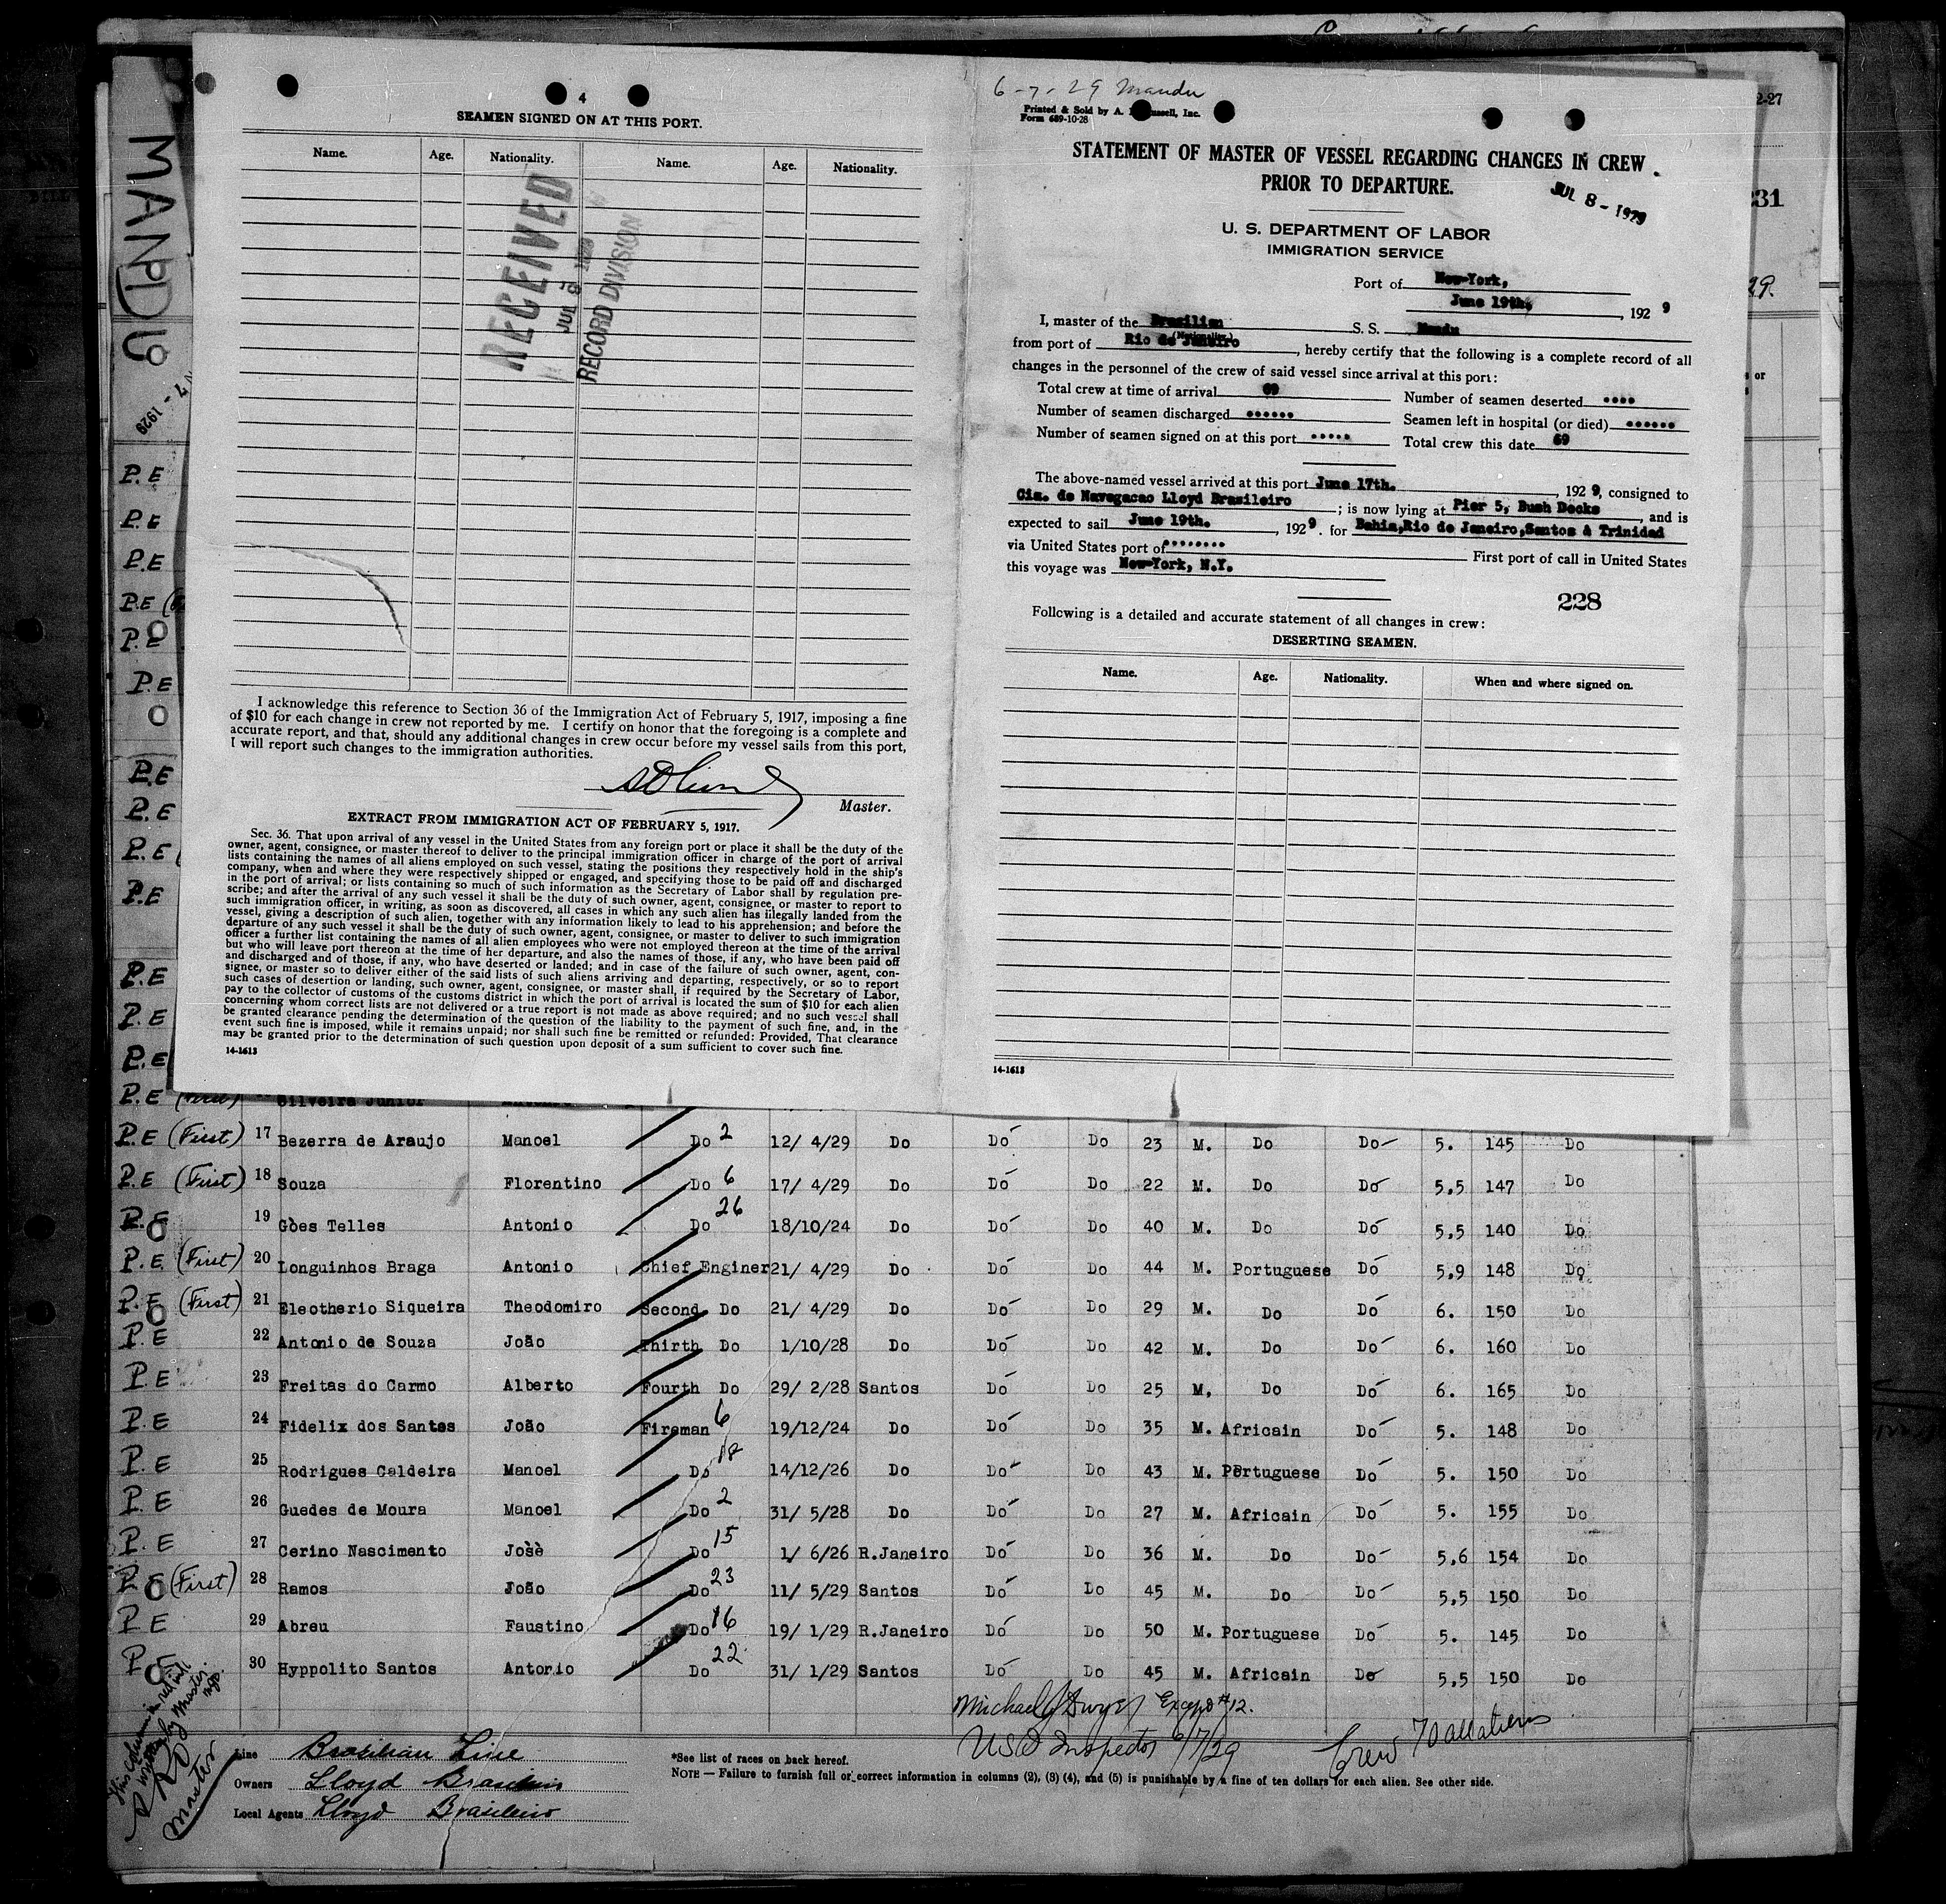 MANDU
7 - 1929
4
SEAMEN SIGNED ON AT THIS PORT.
Name. Age. Nationality. Name. Age. Nationality.
RECEIVED
JUL 8 1929
RECORD DIVISION
I acknowledge this reference to Section 36 of the Immigration Act of February 5, 1917, imposing a fine
of $10 for each change in crew not reported by me. I certify on honor that the foregoing is a complete and
accurate report, and that, should any additional changes in crew occur before my vessel sails from this port,
I will report such changes to the immigration authorities.
Master.
EXTRACT FROM IMMIGRATION ACT OF FEBRUARY 5, 1917.
Sec. 36. That upon arrival of any vessel in the United States from any foreign port or place it shall be the duty of the
owner, agent, consignee, or master thereof to deliver to the principal immigration officer in charge of the port of arrival
lists containing the names of all aliens employed on such vessel, stating the positions they respectively hold in the ship's
company, when and where they were respectively shipped or engaged, and specifying those to be paid off and discharged
in the port of arrival; or lists containing so much of such information as the Secretary of Labor shall by regulation pre-
scribe; and after the arrival of any such vessel it shall be the duty of such owner, agent, consignee, or master to report to
such immigration officer, in writing, as soon as discovered, all cases in which any such alien has illegally landed from the
vessel, giving a description of such alien, together with any information likely to lead to his apprehension; and before the
departure of any such vessel it shall be the duty of such owner, agent, consignee, or master to deliver to such immigration
officer a further list containing the names of all alien employees who were not employed thereon at the time of the arrival
but who will leave port thereon at the time of her departure, and also the names of those, if any, who have been paid off
and discharged and of those, if any, who have deserted or landed; and in case of the failure of such owner, agent, con-
signee, or master so to deliver either of the said lists of such aliens arriving and departing, respectively, or so to report
such cases of desertion or landing, such owner, agent, consignee, or master shall, if required by the Secretary of Labor,
pay to the collector of customs of the customs district in which the port of arrival is located the sum of $10 for each alien
concerning whom correct lists are not delivered or a true report is not made as above required; and no such vessel shall
be granted clearance pending the determination of the question of the liability to the payment of such fine, and, in the
event such fine is imposed, while it remains unpaid; nor shall such fine be remitted or refunded: Provided, That clearance
may be granted prior to the determination of such question upon deposit of a sum sufficient to cover such fine.
14-1613
6-7-29 Mandu
Printed & Sold by A. ussell, Inc.
Form 689-10-28
STATEMENT OF MASTER OF VESSEL REGARDING CHANGES IN CREW
PRIOR TO DEPARTURE.
JUL 8 - 1929
U. S. DEPARTMENT OF LABOR
IMMIGRATION SERVICE
Port of New-York,
June 19th. , 192 9
I, master of the Brasilian S. S. Mandu
(Nationality)
from port of Rio de Janeiro , hereby certify that the following is a complete record of all
changes in the personnel of the crew of said vessel since arrival at this port:
Total crew at time of arrival 69 Number of seamen deserted ....
Number of seamen discharged ...... Seamen left in hospital (or died) ......
Number of seamen signed on at this port ..... Total crew this date 69
The above-named vessel arrived at this port June 17th. , 192 9, consigned to
Cia. de Navegacao Lloyd Brasileiro ; is now lying at Pier 5, Bush Docks , and is
expected to sail June 19th. , 192 9. for Bahia,Rio de Janeiro,Santos & Trinidad
via United States port of ........ First port of call in United States
this voyage was New-York, N.Y.
228
Following is a detailed and accurate statement of all changes in crew:
DESERTING SEAMEN.
Name. Age. Nationality. When and where signed on.
14-1613
2-27
231
29.
s or
P.E
P.E
P.E
P.E
P.E
P.E
P.E
P.E
P.E
P.E
P.E
P.E
P.E
P.E (First) Silveira Junior
P.E (First) 17 Bezerra de Araujo Manoel Do 2 12/ 4/29 Do Do Do 23 M. Do Do 5. 145 Do
P.E (First) 18 Souza Florentino Do 6 17/ 4/29 Do Do Do 22 M. Do Do 5,5 147 Do
P.E 19 Gòes Telles Antonio Do 26 18/10/24 Do Do Do 40 M. Do Do 5,5 140 Do
P.E. (First) 20 Longuinhos Braga Antonio Chief Enginer 21/ 4/29 Do Do Do 44 M. Portuguese Do 5,9 148 Do
P.E (First) 21 Eleotherio Siqueira Theodomiro Second Do 21/ 4/29 Do Do Do 29 M. Do Do 6. 150 Do
P.E 22 Antonio de Souza João Thirth Do 1/10/28 Do Do Do 42 M. Do Do 6. 160 Do
P.E 23 Freitas do Carmo Alberto Fourth Do 29/ 2/28 Santos Do Do 25 M, Do Do 6. 165 Do
P.E 24 Fidelix dos Santos João Fireman 6 19/12/24 Do Do Do 35 M. Africain Do 5. 148 Do
P.E 25 Rodrigues Caldeira Manoel Do 18 14/12/26 Do Do Do 43 M. Portuguese Do 5. 150 Do
P.E 26 Guedes de Moura Manoel Do 2 31/ 5/28 Do Do Do 27 M. Africain Do 5. 155 Do
P.E 27 Cerino Nascimento Josè Do 15 1/ 6/26 R.Janeiro Do Do 36 M. Do Do 5,6 154 Do
P.E (First) 28 Ramos João Do 23 11/ 5/29 Santos Do Do 45 M. Do Do 5,5 150 Do
P.E 29 Abreu Faustino Do 16 19/ 1/29 R.Janeiro Do Do 50 M. Portuguese Do 5. 145 Do
P.E 30 Hyppolito Santos Antonio Do 22 31/ 1/29 Santos Do Do 45 M. Africain Do 5,5 150 Do
Michael J Dwyer Except #12.
US Inspector 6/7/29
Crew 70 all aliens
This column in red ink
written by Master.
Master
Line Brasilian Line
Owners Lloyd Brasileiro
Local Agents Lloyd Brasileiro
*See list of races on back hereof.
NOTE — Failure to furnish full or correct information in columns (2), (3) (4), and (5) is punishable by a fine of ten dollars for each alien. See other side.